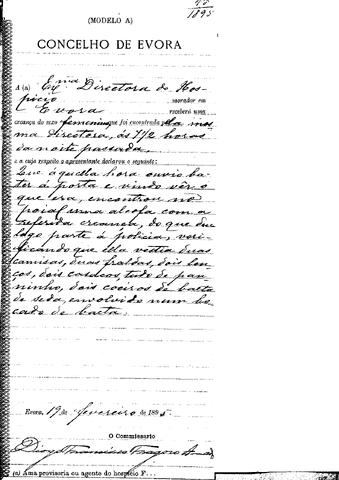 1895
(MODELO A)
CONCELHO DE EVORA
A (a) Exma Directora do Hos-
picio morador em
Evora receberá uma
creança do sexo femenino que foi encontrada pela mes-
ma Directora, ás 7 1/2 horas
da noite passada,
e a cujo respeito a apresentante declarou o seguinte:
Que áquella hora ouvio ba-
ter á porta e vindo vêr o
que era, encontrou no
poial uma alcofa com a
referida creança, do que deu
logo parte á policia, veri-
ficando que ella vestia duas
camisas, duas fraldas, dois len-
ços, dois casacos, tudo de pan-
ninho, dois coeiros de baeta
de seda, envolvido num bo-
cado de baeta.
Evora, 19 de fevereiro de 1895.
O Commissario
Diogo Francisco Fragoso
(a) Ama provisoria ou agente do hospicio F...